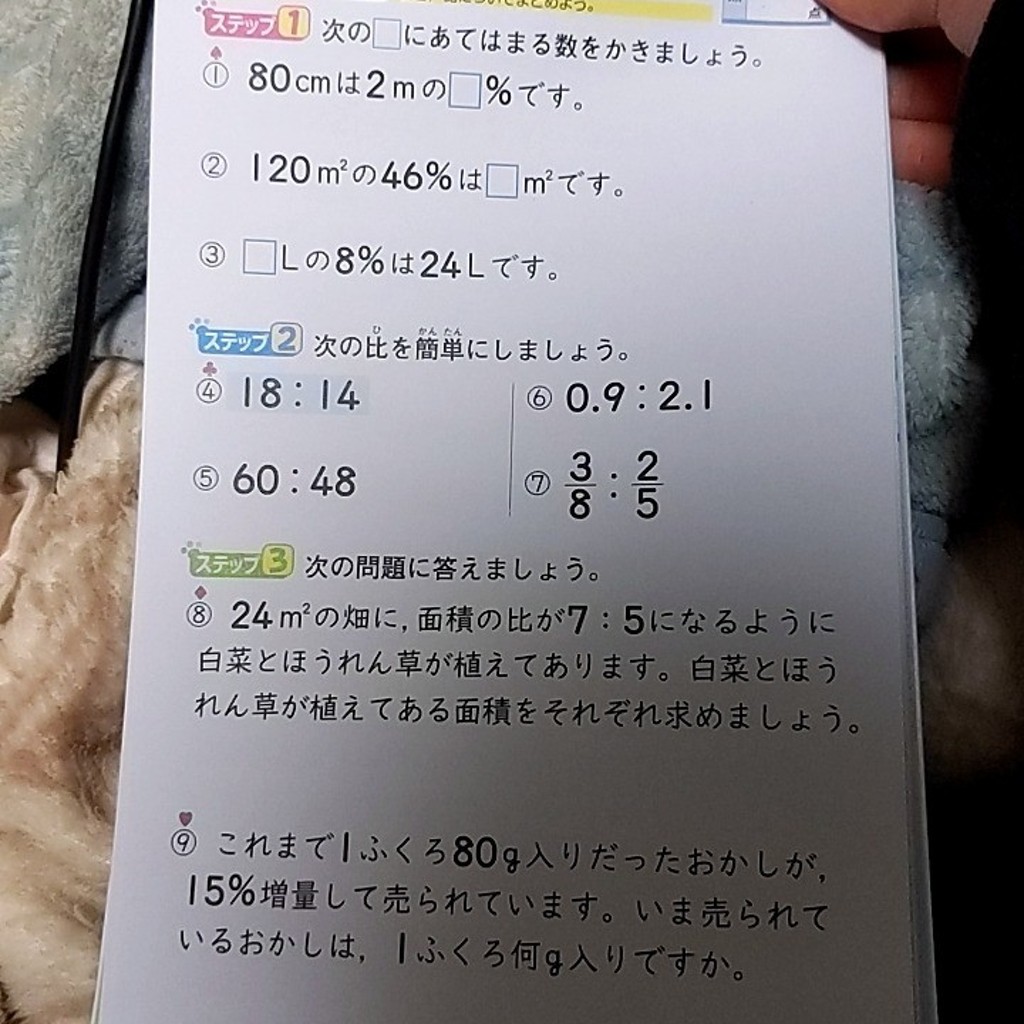 てまとめよう。
点
ステップ1 次の□にあてはまる数をかきましょう。
① 80cmは2mの□%です。
② 120m²の46%は□m²です。
③ □Lの8%は24Lです。
ステップ2 次の比を簡単にしましょう。
ひ かんたん
④ 18:14
⑤ 60:48
⑥ 0.9:2.1
⑦ 3/8:2/5
ステップ3 次の問題に答えましょう。
⑧ 24m²の畑に,面積の比が7:5になるように
白菜とほうれん草が植えてあります。白菜とほう
れん草が植えてある面積をそれぞれ求めましょう。
⑨ これまで1ふくろ80g入りだったおかしが,
15%増量して売られています。いま売られて
いるおかしは,1ふくろ何g入りですか。